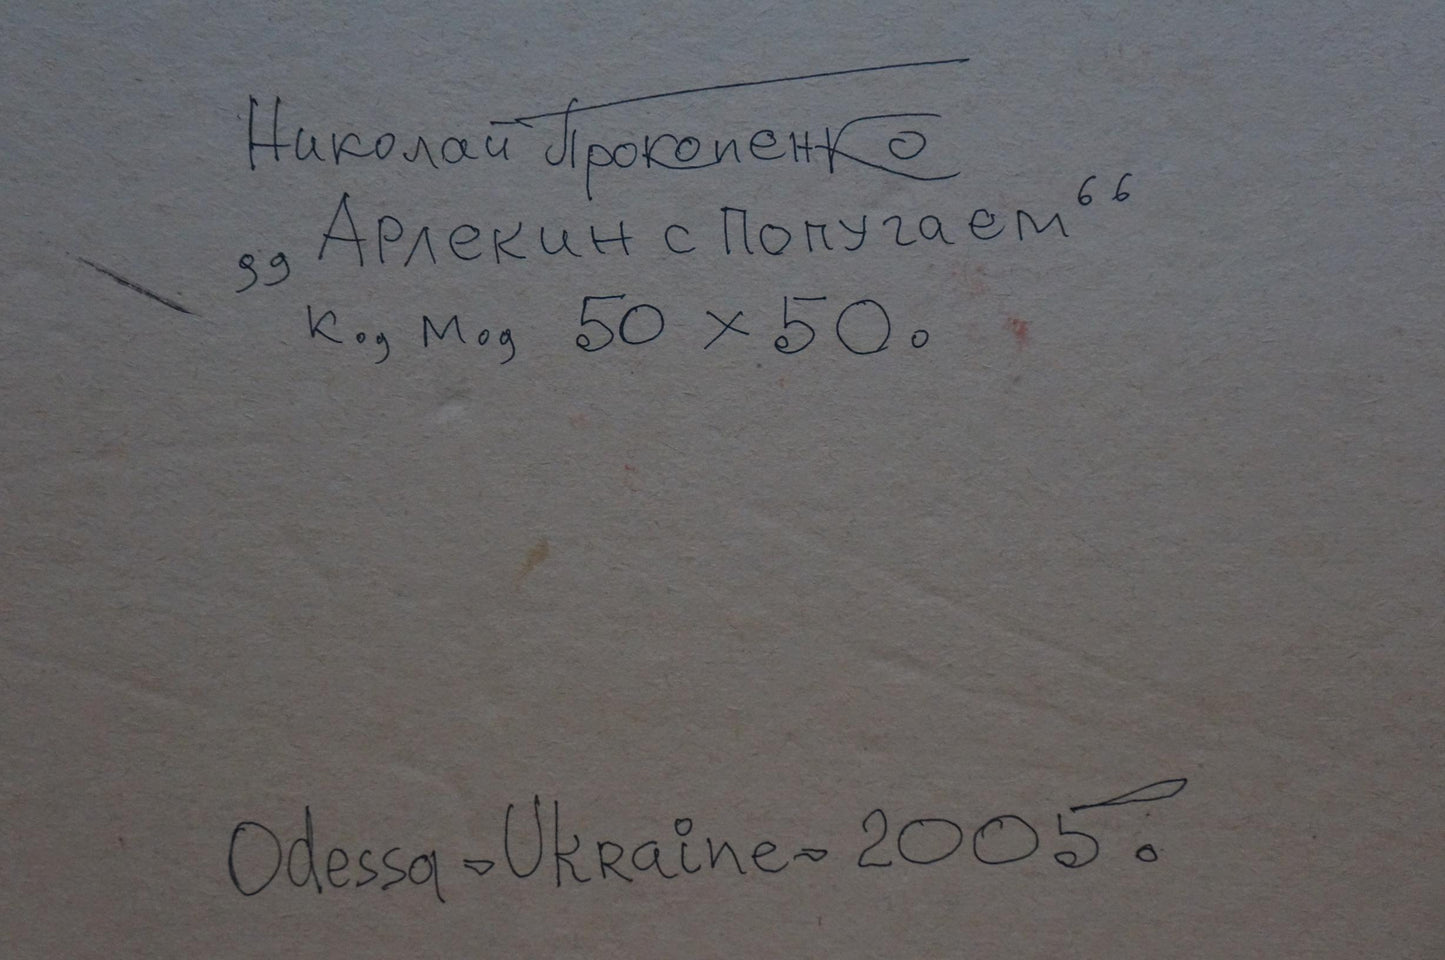 Николай Прокопенко
„Арлекин с Попугаем“
к., м., 50 x 50.
Odessa - Ukraine - 2005.